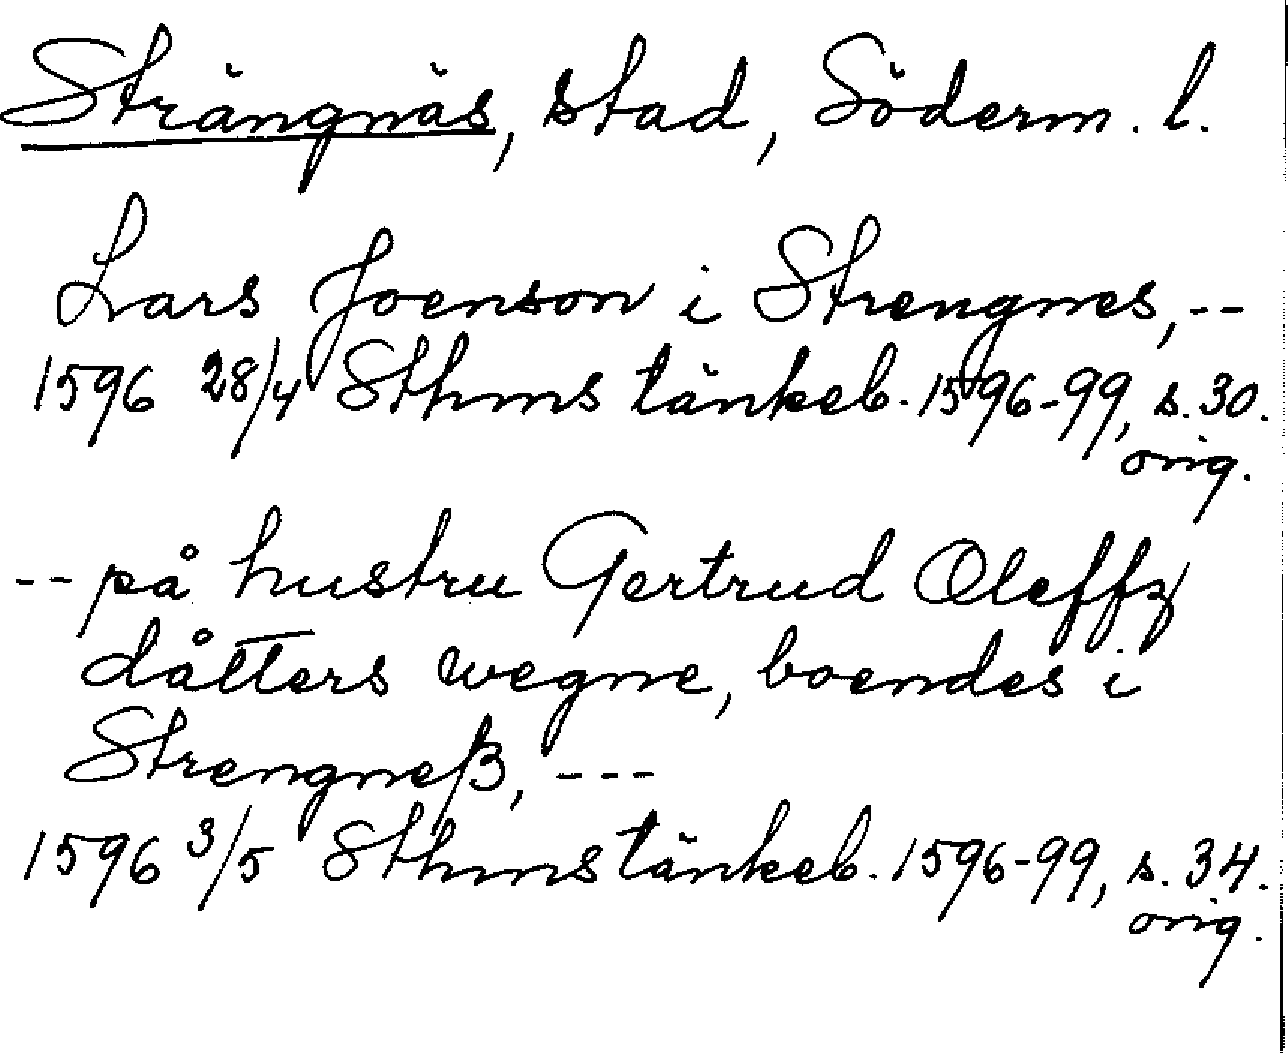 Strängnäs, stad, Söderm. l.
Lars Joenson i Strengnes, --
1596 28/4 Sthms tänkeb. 1596-99, s. 30.
orig.
-- på hustru Gertrud Oleffz
dåtters wegne, boendes i
Strengneß, ---
1596 3/5 Sthms tänkeb. 1596-99, s. 34.
orig.